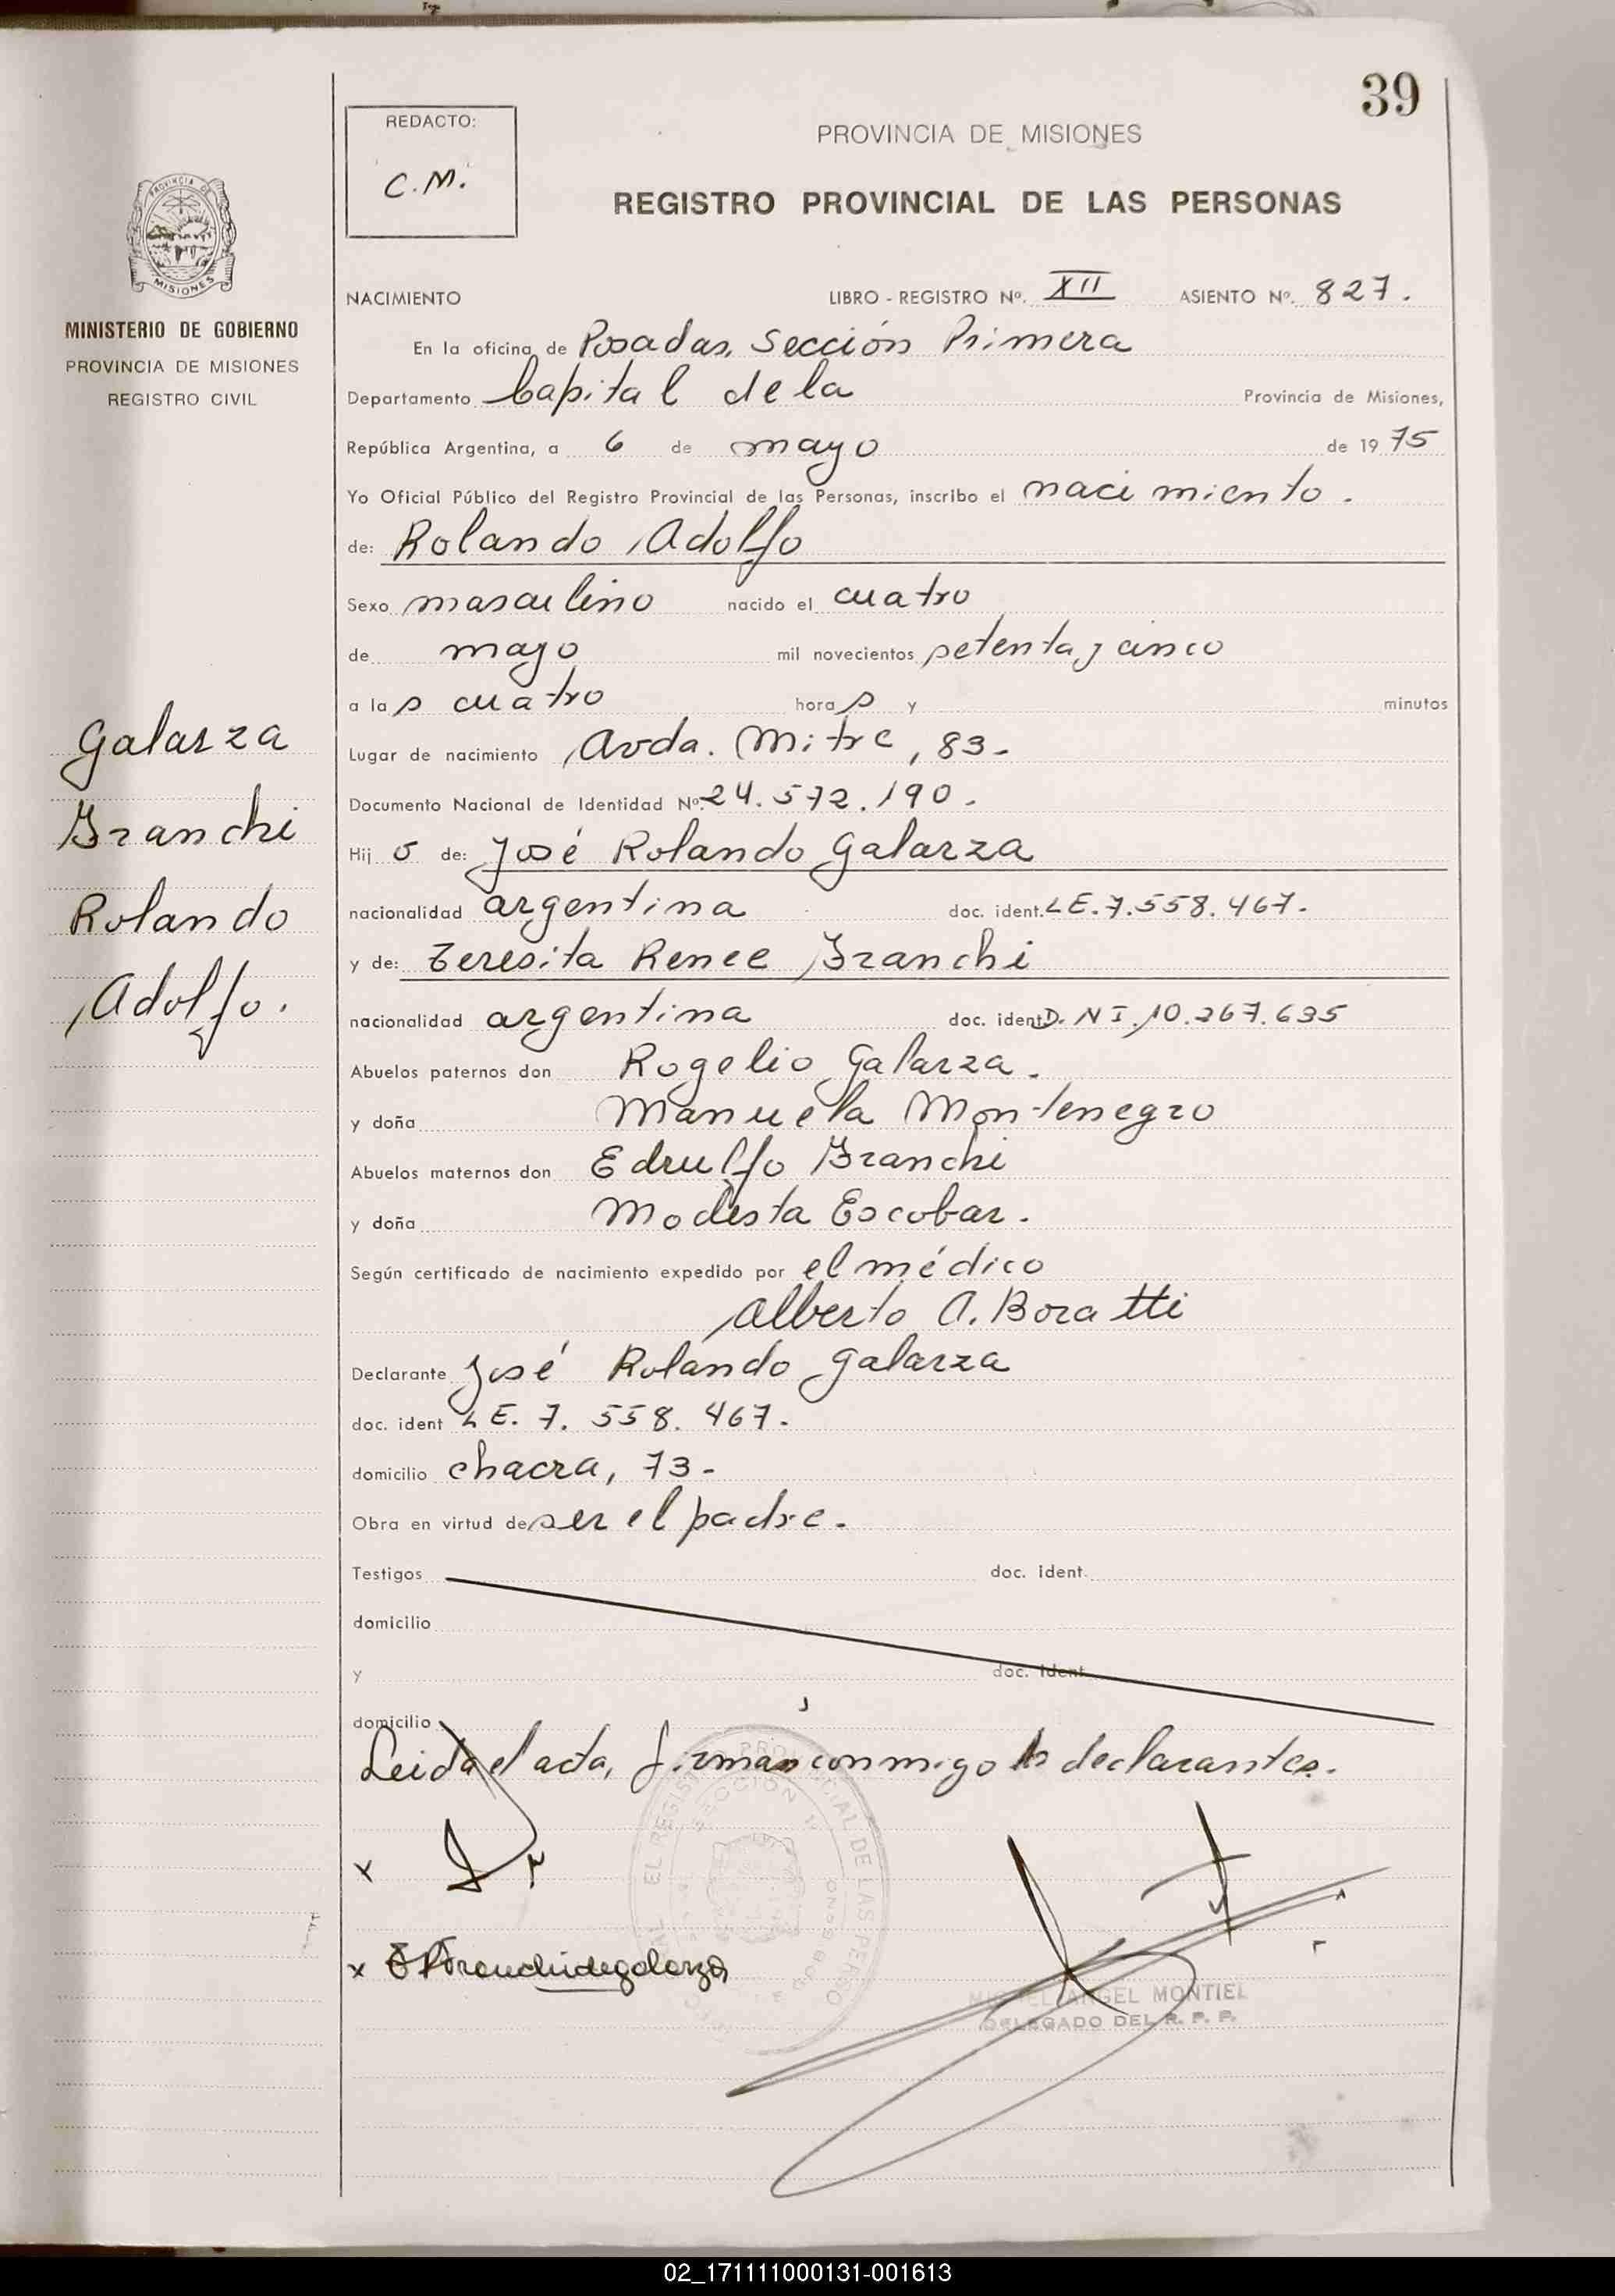 39
REDACTO:
C.M.
PROVINCIA DE MISIONES
REGISTRO PROVINCIAL DE LAS PERSONAS
MISIONES
MINISTERIO DE GOBIERNO
PROVINCIA DE MISIONES
REGISTRO CIVIL
Galarza
Branchi
Rolando
Adolfo.
NACIMIENTO LIBRO - REGISTRO Nº. XII ASIENTO Nº. 827.
En la oficina de Posadas, Sección Primera
Departamento Capital de la Provincia de Misiones,
República Argentina, a 6 de mayo de 1975
Yo Oficial Público del Registro Provincial de las Personas, inscribo el nacimiento.
de: Rolando Adolfo
Sexo masculino nacido el cuatro
de mayo mil novecientos setenta y cinco
a las cuatro horas y minutos
Lugar de nacimiento Avda. Mitre, 83-
Documento Nacional de Identidad Nº. 24.572.190.
Hijo de: José Rolando Galarza
nacionalidad argentina doc. ident. L E. 7.558.467.
y de: Teresita Renee Branchi
nacionalidad argentina doc. ident D. N I. 10.267.635
Abuelos paternos don Rogelio Galarza.
y doña Manuela Montenegro
Abuelos maternos don Edrulfo Branchi
y doña Modesta Escobar.
Según certificado de nacimiento expedido por el médico
Alberto A. Boratti
Declarante José Rolando Galarza
doc. ident L E. 7. 558. 467.
domicilio chacra, 73-
Obra en virtud de ser el padre.
Testigos doc. ident.
domicilio
y doc. ident
domicilio
Leida el acta, firman conmigo los declarantes.
x
x
MIGUEL ANGEL MONTIEL
DELEGADO DEL R. P. P.
02_171111000131-001613